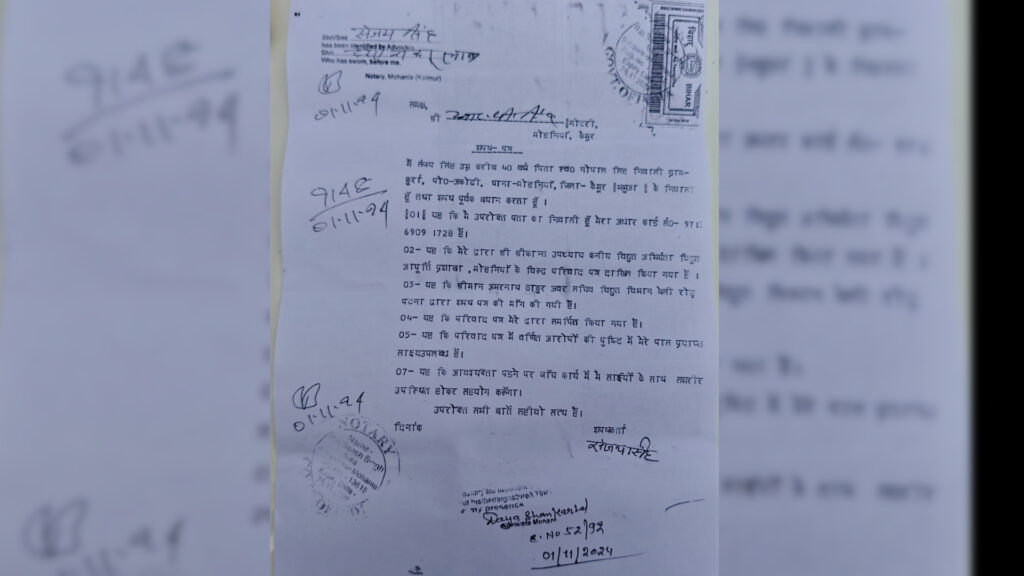 Shri/Smt. संजय सिंह
has been identified by Advocate
Shri
Who has sworn, before me.
Notary, Mohania (Kaimur)
01-11-24
BIHAR
समक्ष,
श्री नोटरी,
मोहनियाँ, कैमूर
शपथ-पत्र
मैं संजय सिंह उम्र करीब 40 वर्ष पिता स्व0 गोपाल सिंह निवासी ग्राम-
कुर्रा, पो0-अकोढ़ी, थाना-मोहनियाँ, जिला- कैमूर [भभुआ] के निवासी
हूँ तथा शपथ पूर्वक बयान करता हूँ ।
914E
01-11-24
[01] यह कि मैं उपरोक्त पता का निवासी हूँ मेरा अधार कार्ड सं0- 971
6909 1728 है।
02- यह कि मेरे द्वारा श्री श्रीकान्त उपध्याय कनीय विद्युत अभियंता विद्युत
आपूर्ति प्रशाखा, मोहनियाँ के विरूद्ध परिवाद पत्र दाखिल किया गया है ।
03- यह कि श्रीमान अमरनाथ ठाकुर अवर सचिव विद्युत विभाग बेली रोड़
पटना द्वारा शपथ पत्र की माँग की गयी है।
04- यह कि परिवाद पत्र मेरे द्वारा समर्पित किया गया है।
05- यह कि परिवाद पत्र में वर्णित आरोपों की पुष्टि में मेरे पास प्रयाप्त
साक्ष्यउपलब्ध है।
07- यह कि आवश्यकता पड़ने पर जाँच कार्य में मैं साक्ष्यों के साथ सशरीर
उपस्थित होकर सहयोग करूँगा।
उपरोक्त सभी बातें सही वो सत्य है।
01-11-24
दिनांक
शपथकर्ता
संजय सिंह
NOTARY
Name-
Singh
presence
Daya Shankar
Advocate Mohania
E. No 52/92
01/11/2024